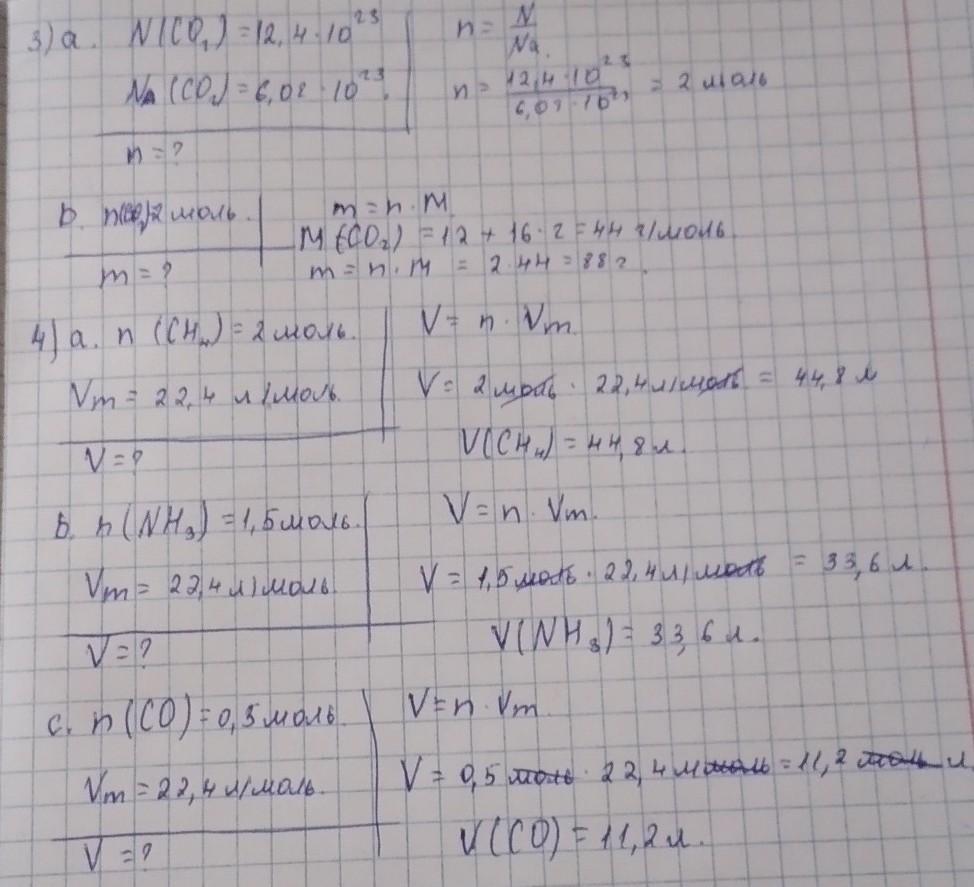 3) a. N(CO₂) = 12,4 · 10²³
n = N/Na.
Na (CO₂) = 6,02 · 10²³.
n = 12,4 · 10²³ / 6,02 · 10²³ = 2 моль
n = ?
b. n(CO₂) 2 моль.
m = n · M
M (CO₂) = 12 + 16 · 2 = 44 г/моль
m = ?
m = n · M = 2 · 44 = 88 г.
4) a. n (CH₄) = 2 моль.
V = n · Vm
Vm = 22,4 л/моль.
V = 2 моль · 22,4 л/моль = 44,8 л
V = ?
V(CH₄) = 44,8 л.
b. n (NH₃) = 1,5 моль.
V = n · Vm.
Vm = 22,4 л/моль.
V = 1,5 моль · 22,4 л/моль = 33,6 л.
V = ?
V(NH₃) = 33,6 л.
c. n (CO) = 0,5 моль.
V = n · Vm
Vm = 22,4 л/моль.
V = 0,5 моль · 22,4 л/моль = 11,2 моль л
V = ?
V (CO) = 11,2 л.